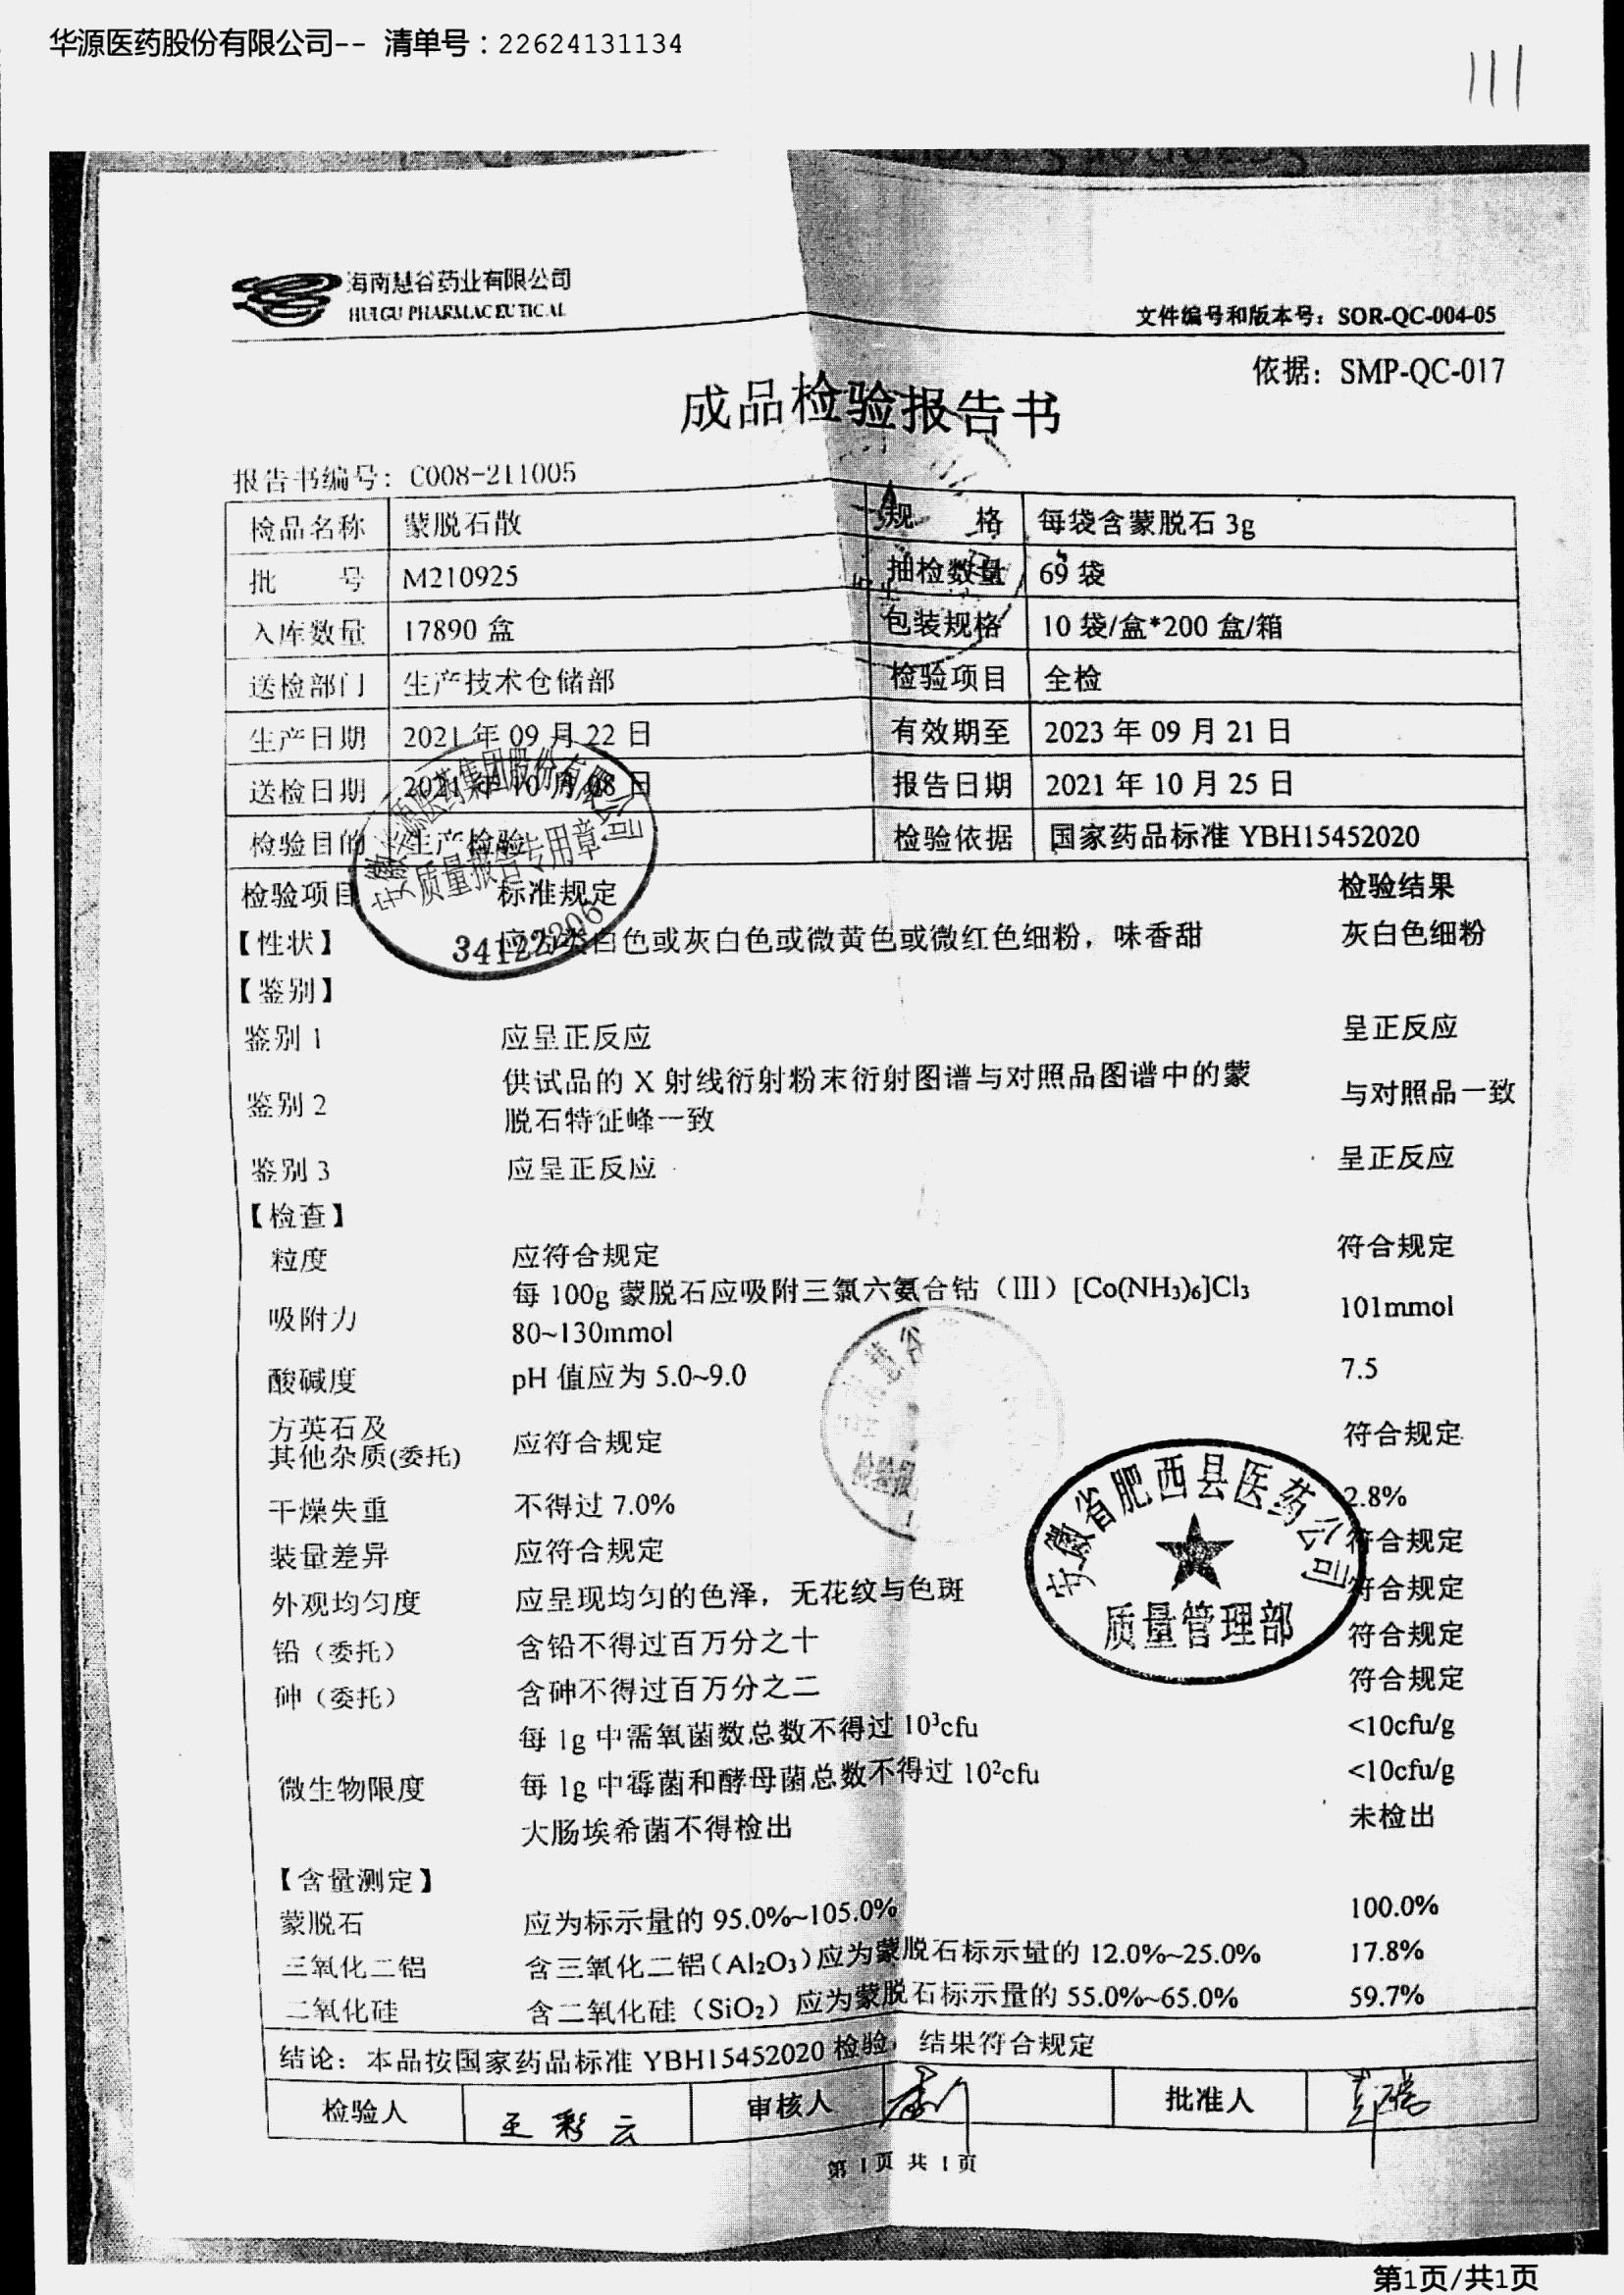 华源医药股份有限公司-- 清单号：22624131134
海南慧谷药业有限公司
HUIGU PHARMACEUTICAL
文件编号和版本号：SOR-QC-004-05
依据：SMP-QC-017
成品检验报告书
报告书编号：C008-211005
检品名称 蒙脱石散 规 格 每袋含蒙脱石 3g
批 号 M210925 抽检数量 69 袋
入库数量 17890 盒 包装规格 10 袋/盒*200 盒/箱
送检部门 生产技术仓储部 检验项目 全检
生产日期 2021 年 09 月 22 日 有效期至 2023 年 09 月 21 日
送检日期 2021 年 10 月 08 日 报告日期 2021 年 10 月 25 日
检验目的 生产检验 检验依据 国家药品标准 YBH15452020
检验项目 标准规定 检验结果
【性状】 应为类白色或灰白色或微黄色或微红色细粉，味香甜 灰白色细粉
【鉴别】
鉴别 1 应呈正反应 呈正反应
鉴别 2 供试品的 X 射线衍射粉末衍射图谱与对照品图谱中的蒙 与对照品一致
脱石特征峰一致
鉴别 3 应呈正反应 呈正反应
【检查】
粒度 应符合规定 符合规定
吸附力 每 100g 蒙脱石应吸附三氯六氨合钴（Ⅲ）[Co(NH₃)₆]Cl₃ 101mmol
80~130mmol
酸碱度 pH 值应为 5.0~9.0 7.5
方英石及
其他杂质(委托) 应符合规定 符合规定
干燥失重 不得过 7.0% 2.8%
装量差异 应符合规定 符合规定
外观均匀度 应呈现均匀的色泽，无花纹与色斑 符合规定
铅（委托） 含铅不得过百万分之十 符合规定
砷（委托） 含砷不得过百万分之二 符合规定
每 1g 中需氧菌数总数不得过 10³cfu <10cfu/g
微生物限度 每 1g 中霉菌和酵母菌总数不得过 10²cfu <10cfu/g
大肠埃希菌不得检出 未检出
【含量测定】
蒙脱石 应为标示量的 95.0%~105.0% 100.0%
三氧化二铝 含三氧化二铝（Al₂O₃）应为蒙脱石标示量的 12.0%~25.0% 17.8%
二氧化硅 含二氧化硅（SiO₂）应为蒙脱石标示量的 55.0%~65.0% 59.7%
结论：本品按国家药品标准 YBH15452020 检验，结果符合规定
检验人 王彩云 审核人 批准人
第 1 页 共 1 页
安徽华源医药集团股份有限公司
质量报告专用章
34122206
安徽省肥西县医药公司
质量管理部
第1页/共1页